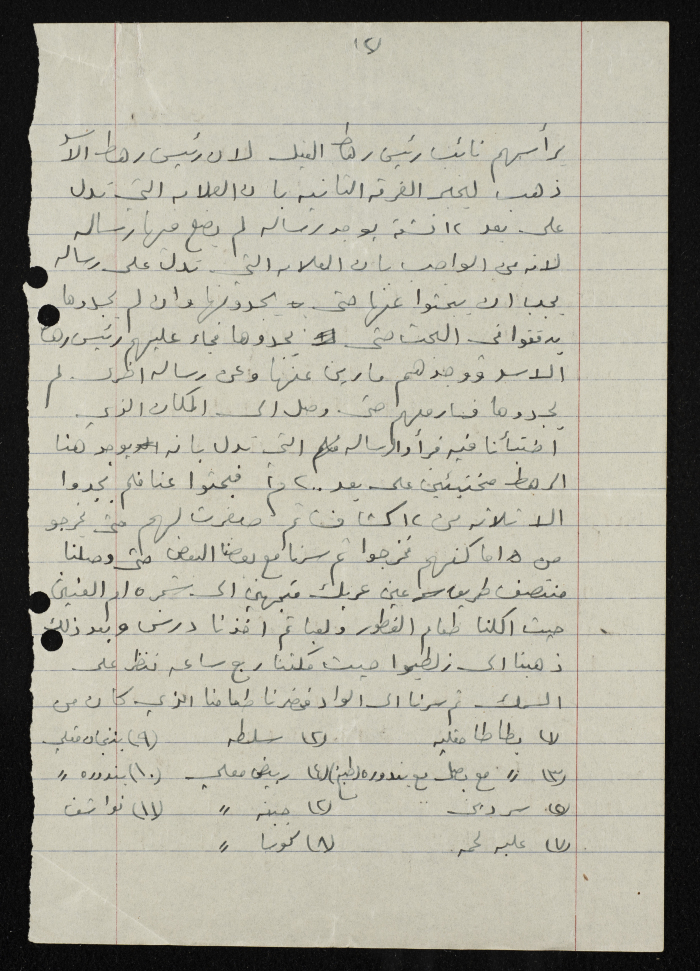 ١٧
يرأسهم نائب رئيس رهط الفيل لان رئيس رهط الأسد
ذهب ليخبر الفرقه الثانيه بان العلامه التي تدل
على بعد ١٢ يوجد رساله لم يضع فيها رساله
لانه من الواجب بان العلامه التي تدل على رساله
يجب ان يبحثوا عنها حتى يجدونها وان لم يجدوها
يدققوا في البحث حتى يجدوها فجاء عليهم رئيس رهط
الاسد ووجدهم مارين عنها وعن رساله اخرى لم
يجدوها فسار معهم حتى وصل الى المكان الذي
اختبأنا فيه فرأوا الرساله التي تدل بانه يوجد هنا
الرهط مختبئين على بعد ٢٠٠ م فبحثوا عنا فلم يجدوا
الا ثلاثه من ١٢ كشافا ثم صفرت لهم حتى يخرجو
من اماكنهم فخرجوا ثم سرنا مع بعضنا البعض حتى وصلنا
منتصف طريق عين عريك متجهين الى
حيث اكلنا طعام الفطور ولعبنا ثم اخذنا درس وبعد ذلك
ذهبنا الى حيث مكثنا ربع ساعه ننظر على
السمك ثم سرنا الى الواد فحضرنا طعامنا الذي كان من
(١) بطاطا مقليه (٢) سلطه (٩) بتنجان مقلي
(٣)〃 مع بصل مع بندوره (طبخ) (٤) بيض مقلي (١٠) بندوره 〃
(٥) سردين (٦) جبنه 〃 (١١) نواشف
(٧) علبه لحمه (٨) كوسا 〃